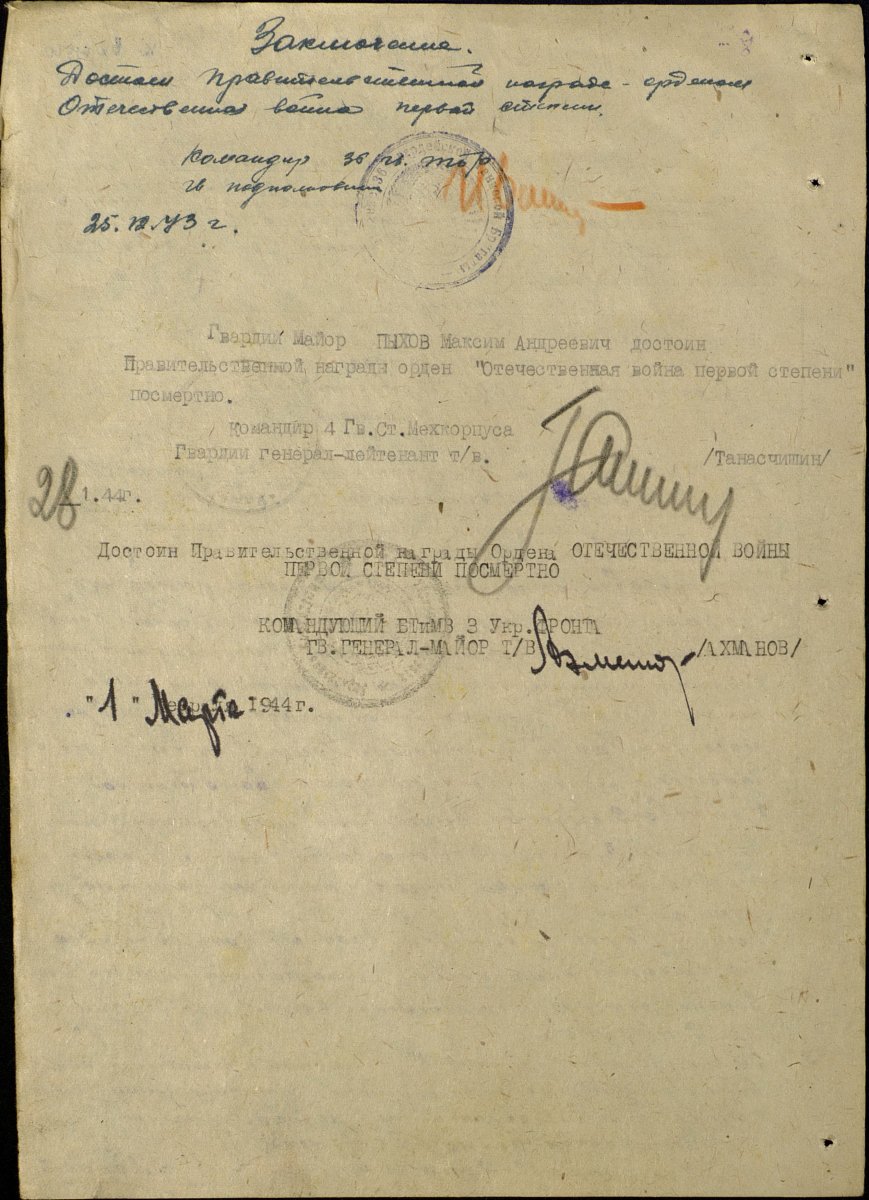 Заключение.
Достоин правительственной награде - орденом
Отечественная война первой степени.
Командир 36 гв. тбр
гв подполковник
25.12.43 г.
Гвардии Майор ПЫХОВ Максим Андреевич достоин
Правительственной награды орден "Отечественная война первой степени"
посмертно.
Командир 4 Гв.Ст.Мехкорпуса
Гвардии генерал-лейтенант т/в. /Танасчишин/
28 1.44г.
Достоин Правительственной награды Ордена ОТЕЧЕСТВЕННОЙ ВОЙНЫ
ПЕРВОЙ СТЕПЕНИ ПОСМЕРТНО
КОМАНДУЮЩИЙ БТиМВ 3 Укр.ФРОНТА
ГВ.ГЕНЕРАЛ-МАЙОР Т/В /АХМАНОВ/
"1" Марта 1944г.